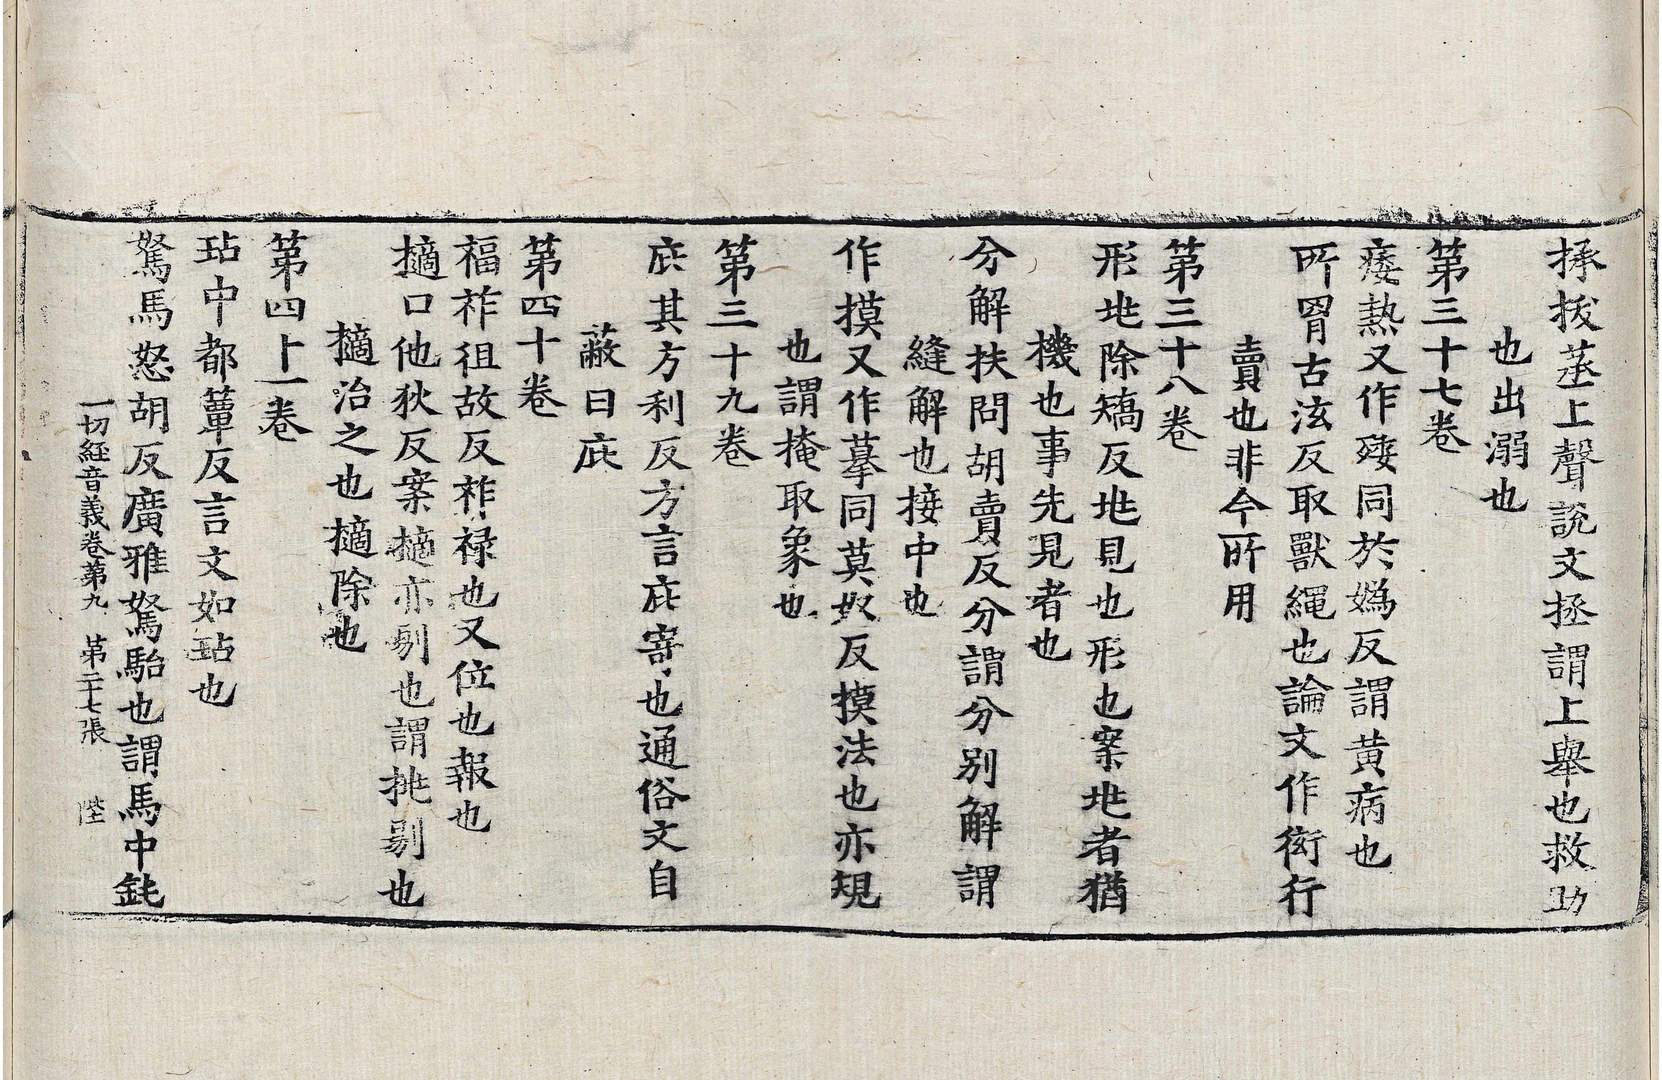 拯拔蒸上聲說文拯謂上舉也救助
也出溺也
第三十七卷
痿熱又作殗同於嬀反謂黃病也
所罥古泫反取獸繩也論文作衒行
賣也非今所用
第三十八卷
形兆除矯反兆見也形也案兆者猶
機也事先見者也
分解扶問胡賣反分謂分別解謂
縫解也接中也
作摸又作摹同莫奴反摸法也亦規
也謂掩取象也
第三十九卷
庇其方利反方言庇寄也通俗文自
蔽曰庇
第四十卷
福祚徂故反祚禄也又位也報也
擿口他狄反案擿亦剔也謂挑剔也
擿治之也擿除也
第四十一卷
玷中都簟反言文如玷也
駑馬怒胡反廣雅駑駘也謂馬中鈍
一切経音義卷苐九 苐二十七張 陛